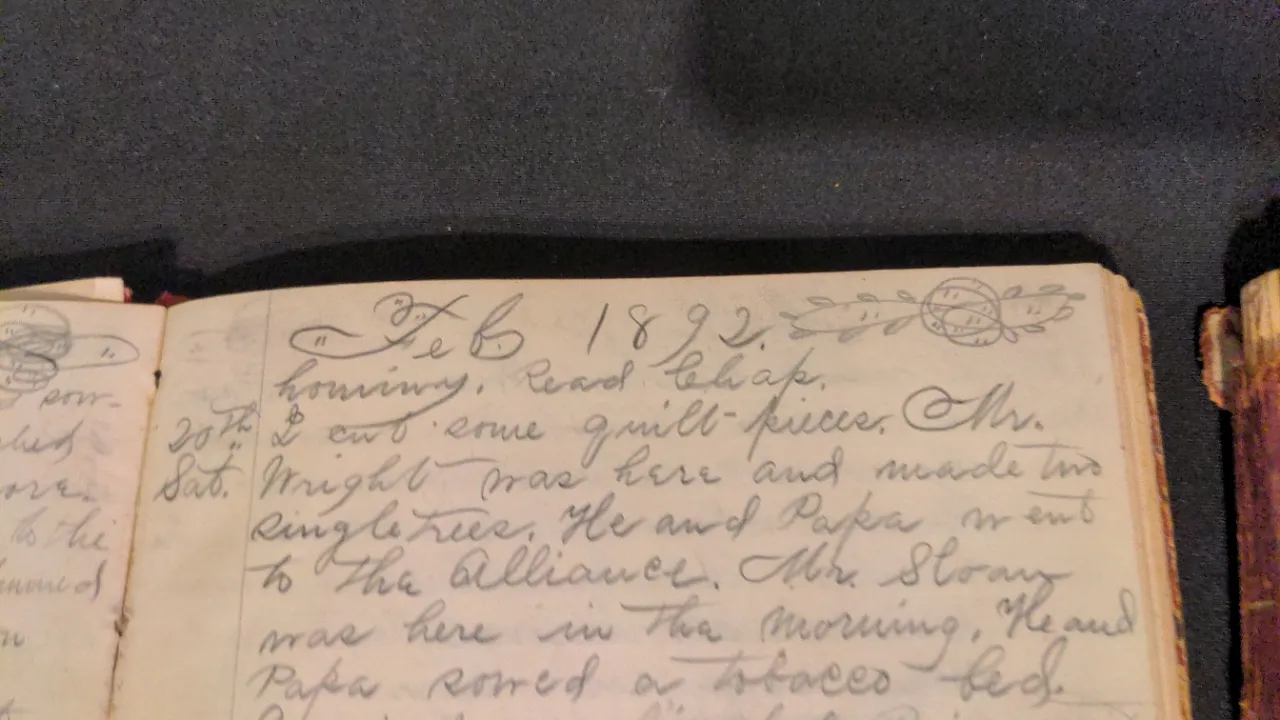 sow-
ore.
to the
Feb 1892.
hominy. Read Chap.
20th I cut some quilt pieces. Mr.
Sat. Wright was here and made two
singletrees. He and Papa went
to the Alliance. Mr. Sloan
was here in the morning. He and
Papa sowed a tobacco bed.